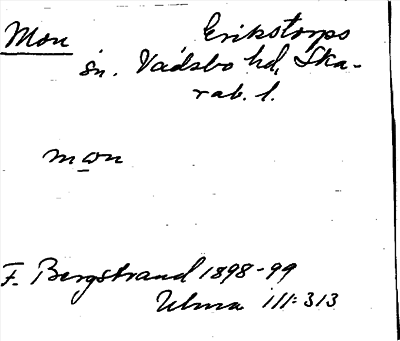 Mon Erikstorps
sn. Vadsbo hd, Ska-
rab. l.
mon
F. Bergstrand 1898-99
Ulma 111:313